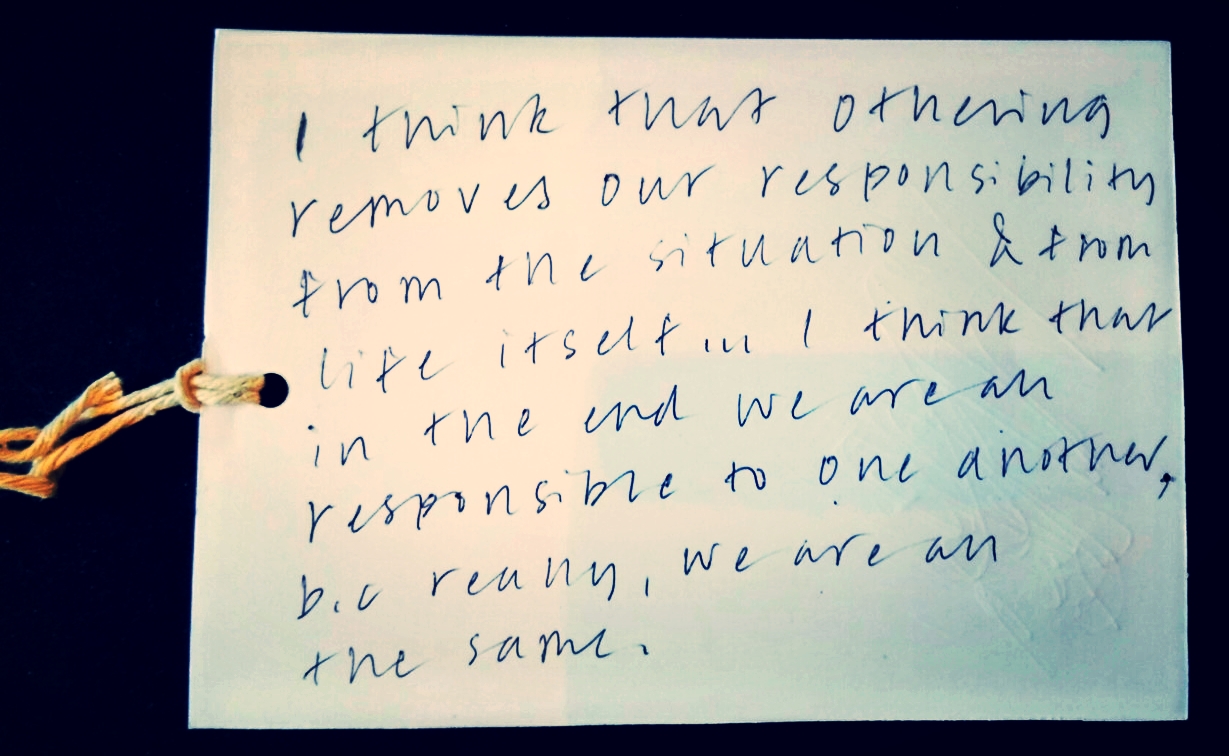 I think that othering
removes our responsibility
from the situation & from
life itself... I think that
in the end we are all
responsible to one another,
b.c really, we are all
the same.